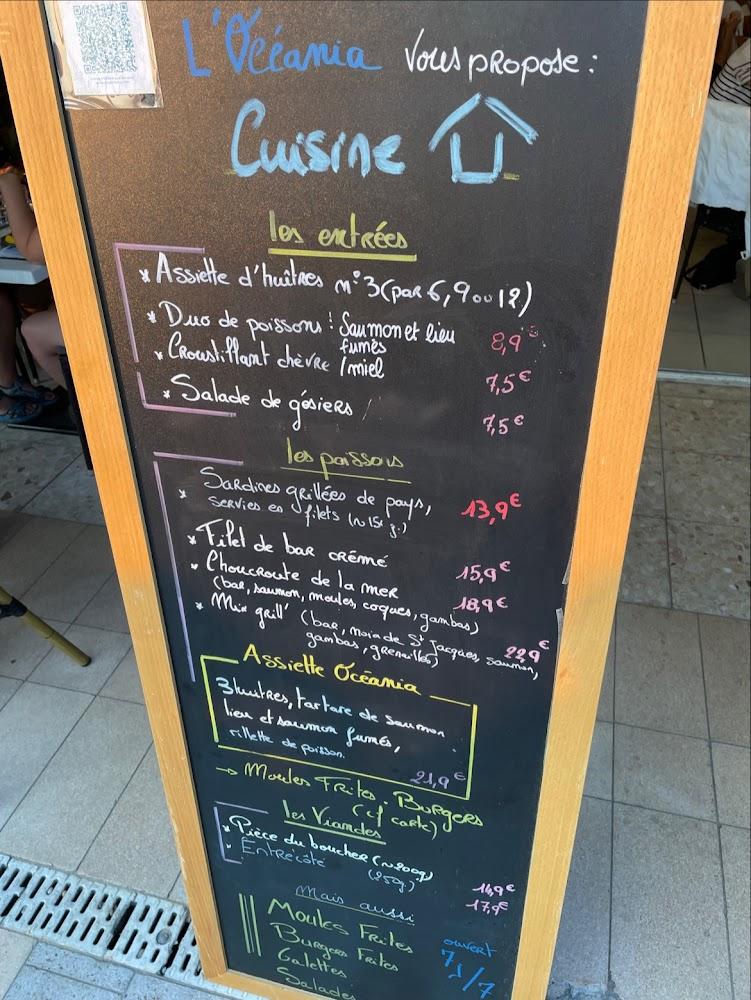 L'Océania vous propose :
Cuisine
les entrées
* Assiette d'huîtres n°3 (par 6, 9 ou 12)
* Duo de poissons : Saumon et lieu
fumés 8,9€
* Croustillant chèvre / miel 7,5€
* Salade de gésiers / 7,5€
les poissons
* Sardines grillées de pays, 13,9€
servies en filets
* Filet de bar crémé 15,9€
* Choucroute de la mer 18,9€
(bar, saumon, moules, coques, gambas)
* Mix grill' (bar, noix de St Jacques, saumon, 22,9€
gambas, grenailles)
Assiette Océania
3 huitres, tartare de saumon
lieu et saumon fumés,
rillette de poisson. 21,9€
→ Moules Frites, Burgers
(cf carte)
les Viandes
* Pièce du boucher (~200g) 14,9€
* Entrecôte (250g) 17,9€
Mais aussi
Moules Frites ouvert
Burgers Frites 7j/7
Galettes
Salades